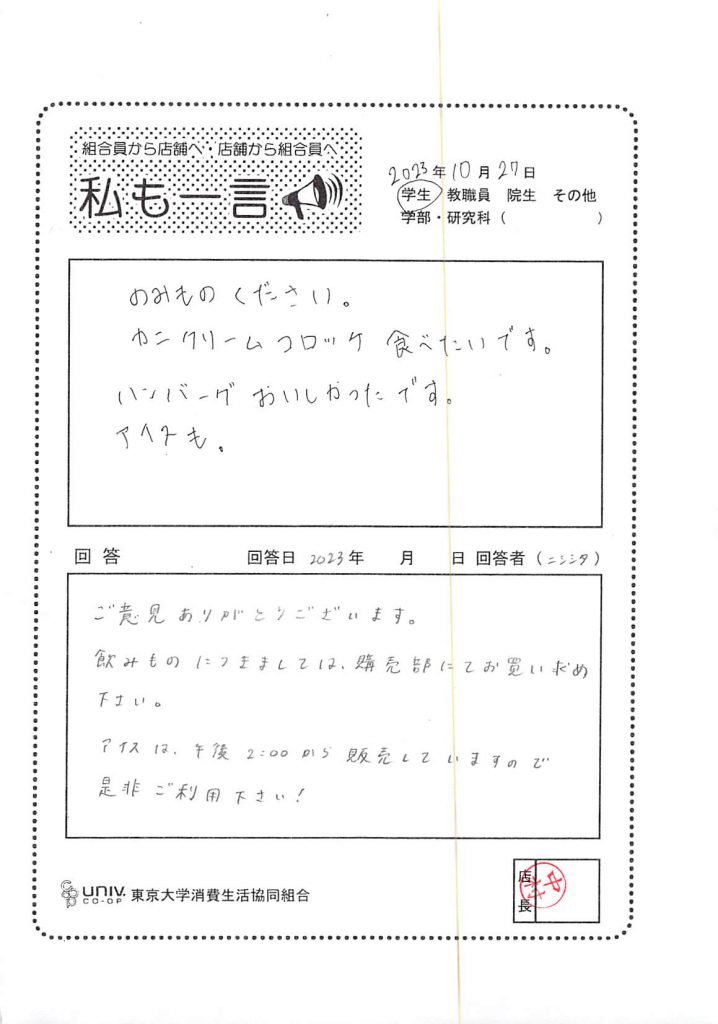 組合員から店舗へ・店舗から組合員へ
私も一言
2023年10月27日
学生 教職員 院生 その他
学部・研究科（ ）
のみものください。
カニクリームコロッケ 食べたいです。
ハンバーグおいしかったです。
アイスも。
回答 回答日 2023年 月 日 回答者（ニシシタ）
ご意見ありがとうございます。
飲みものにつきましては、購売部にてお買い求め
下さい。
アイスは、午後2:00から販売していますので
是非ご利用下さい！
CO-OP UNIV. CO-OP 東京大学消費生活協同組合
店長
中村